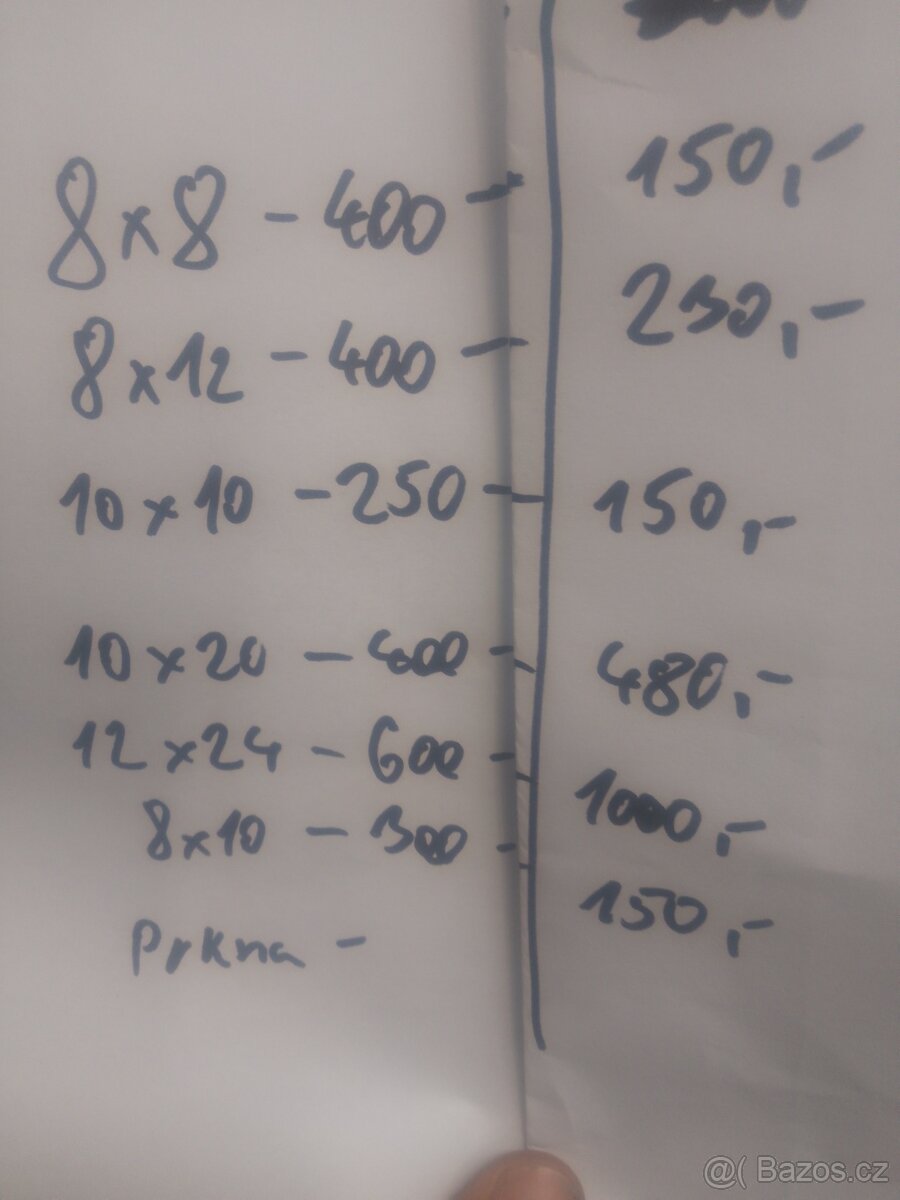 8x8 - 400 - 150,-
8x12 - 400 - 230,-
10x10 - 250 - 150,-
10x20 - 400 - 480,-
12x24 - 600 - 1000,-
8x10 - 300 - 150,-
Prkna -
@( Bazos.cz